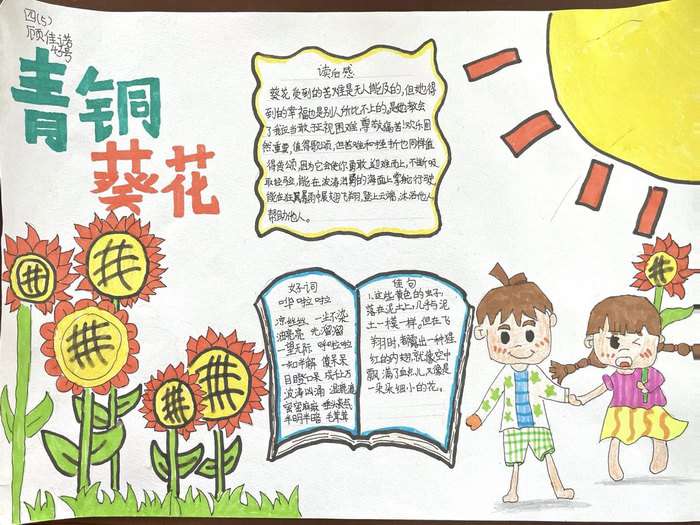 四(5)
顾佳诺
43号
青铜
葵花
读后感
葵花受到的苦难是无人能及的,但她得
到的幸福也是别人所比不上的。是她教会
了我应当敢于正视困难,尊敬痛苦!欢乐固
然重要,值得歌颂,但苦难和挫折也同样值
得赞颂,因为它会使你勇敢、迎难而上,不断吸
取经验,能在波涛汹涌的海面上掌舵行驶,
能在狂风暴雨中展翅飞翔,登上云端,沐浴他人,
帮助他人。
好词
哗啦啦
凉丝丝 一尘不染
油亮亮 光溜溜
一望无际 呼啦啦
一知半解 傻呆呆
目瞪口呆 成千上万
波涛汹涌 湿漉漉
密密麻麻
半明半暗 毛茸茸
佳句
1.这些黄色的虫子,
落在泥土上,几乎与泥
土一模一样,但在飞
翔时,都露出一种猩
红的内翅,就像空中
飘满了血儿,又像是
一朵朵细小的花。